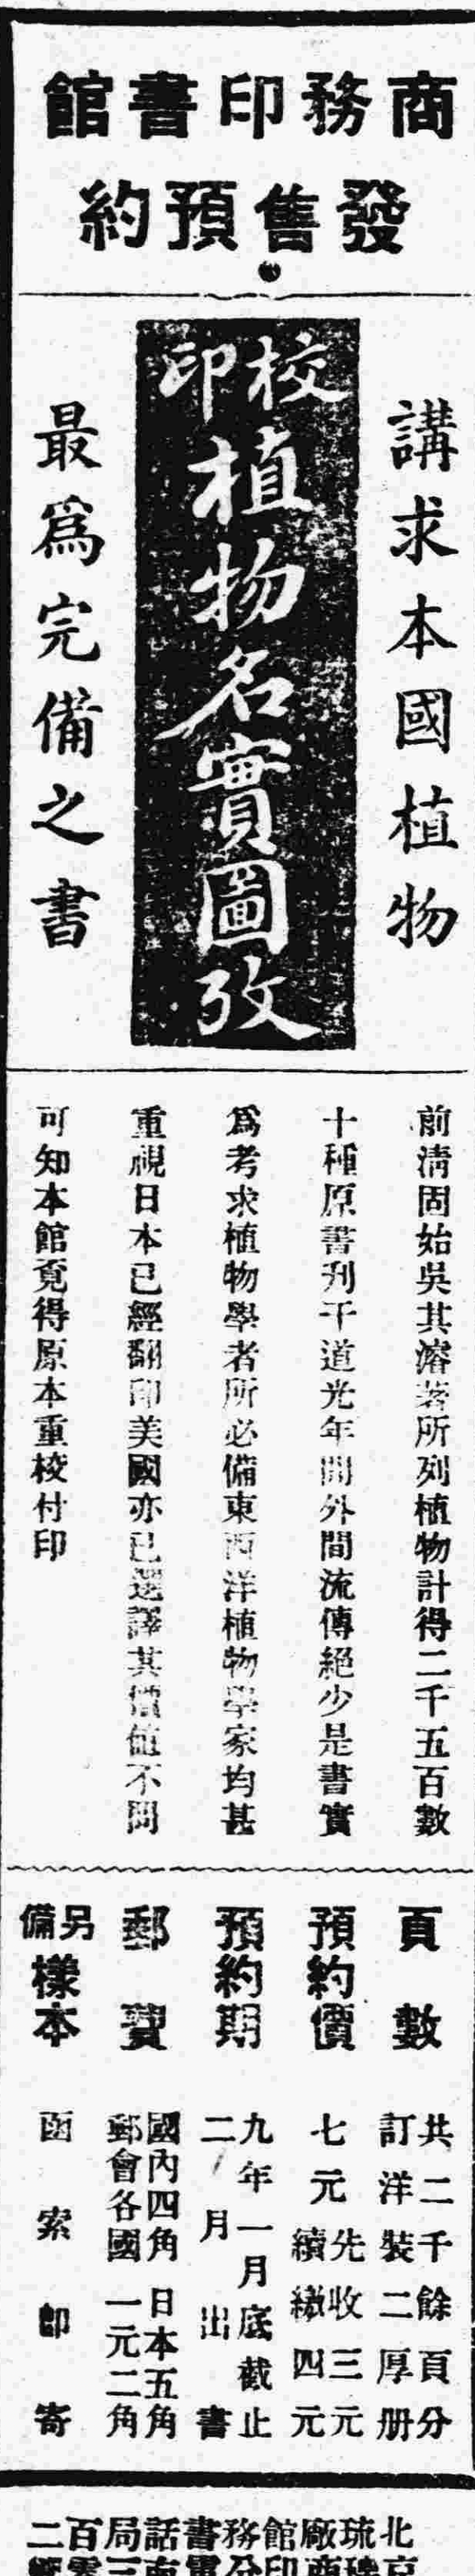 商務印書館
發售預約
講求本國植物
校印
植物名實圖攷
最爲完備之書
前清固始吳其濬著所列植物計得二千五百數
十種原書刋于道光年間外間流傳絕少是書實
爲考求植物學者所必備東西洋植物學家均甚
重視日本已經翻印美國亦已選譯其價値不問
可知本館竟得原本重校付印
頁數
共二千餘頁分
訂洋裝二厚册
預約價
七元
先收三元
續繳四元
預約期
九年一月底截止
二月出書
郵費
國內四角 日本五角
郵會各國 一元二角
另備
樣本
函索卽寄
北京
琉璃
廠商
館印
務分
書
話南
局三
百零
二